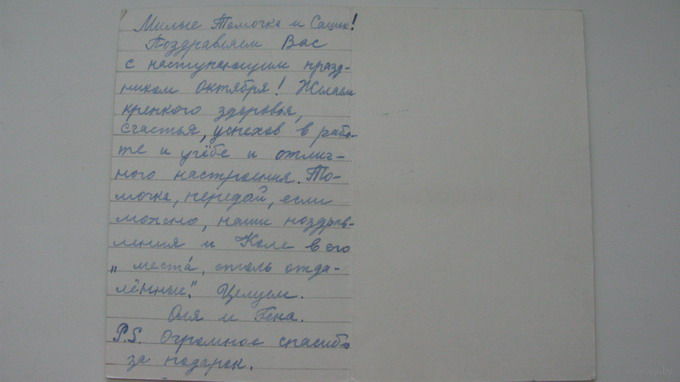 Милые Томочка и Сашик!
Поздравляем Вас
с наступающим празд-
ником Октября! Желаем
крепкого здоровья,
счастья, успехов в рабо-
те и учёбе и отлич-
ного настроения. То-
мочка, передай, если
можно, наши поздрав-
ления и Коле в его
„места́, столь отда-
лённые". Целуем.
Оля и Гена.
P.S. Огромное спасибо
за подарок.